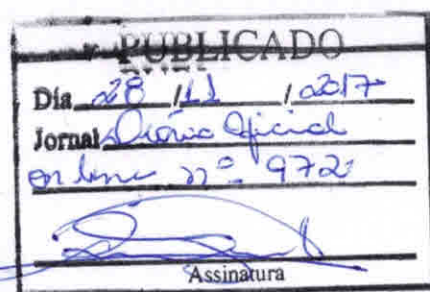 PUBLICADO
Dia 28 / 11 / 2017
Jornal Diário Oficial
on line nº 972
Assinatura